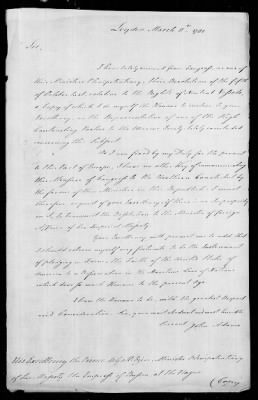 Leyden March 8th 1781
Sir,
I have lately received from Congress, as one of
their Ministers Plenipotentiary, their Resolution of the fifth
of October last, relative to the Rights of Neutral Vessels,
a Copy of which I do myself the Honour to inclose to your
Excellency, as the Representative of one of the high
Contracting Parties to the Marine Treaty lately concluded
concerning this Subject.
As I am fixed by my Duty for the present
to this Part of Europe, I have no other Way of communicating
this Measure of Congress to the Northern Courts, but by
the favor of their Ministers in this Republick. I must
therefore request of your Excellency, if there is no Impropriety
in it, to transmit the Resolution to the Minister of foreign
Affairs of her Imperial Majesty.
Your Excellency will permit me to add that
I should esteem myself very fortunate to be the Instrument
of pledging in form the Faith of the United States of
America to a Reformation in the Maritime Law of Nations
which does so much Honour to the present Age.
I have the Honour to be, with the greatest Respect
and Consideration, Sir, your most obedient & most humble
Servant John Adams
His Excellency the Prince de Gallitzin Minister Plenipotentiary
of her Majesty the Empress of Russia at the Hague
(Copy